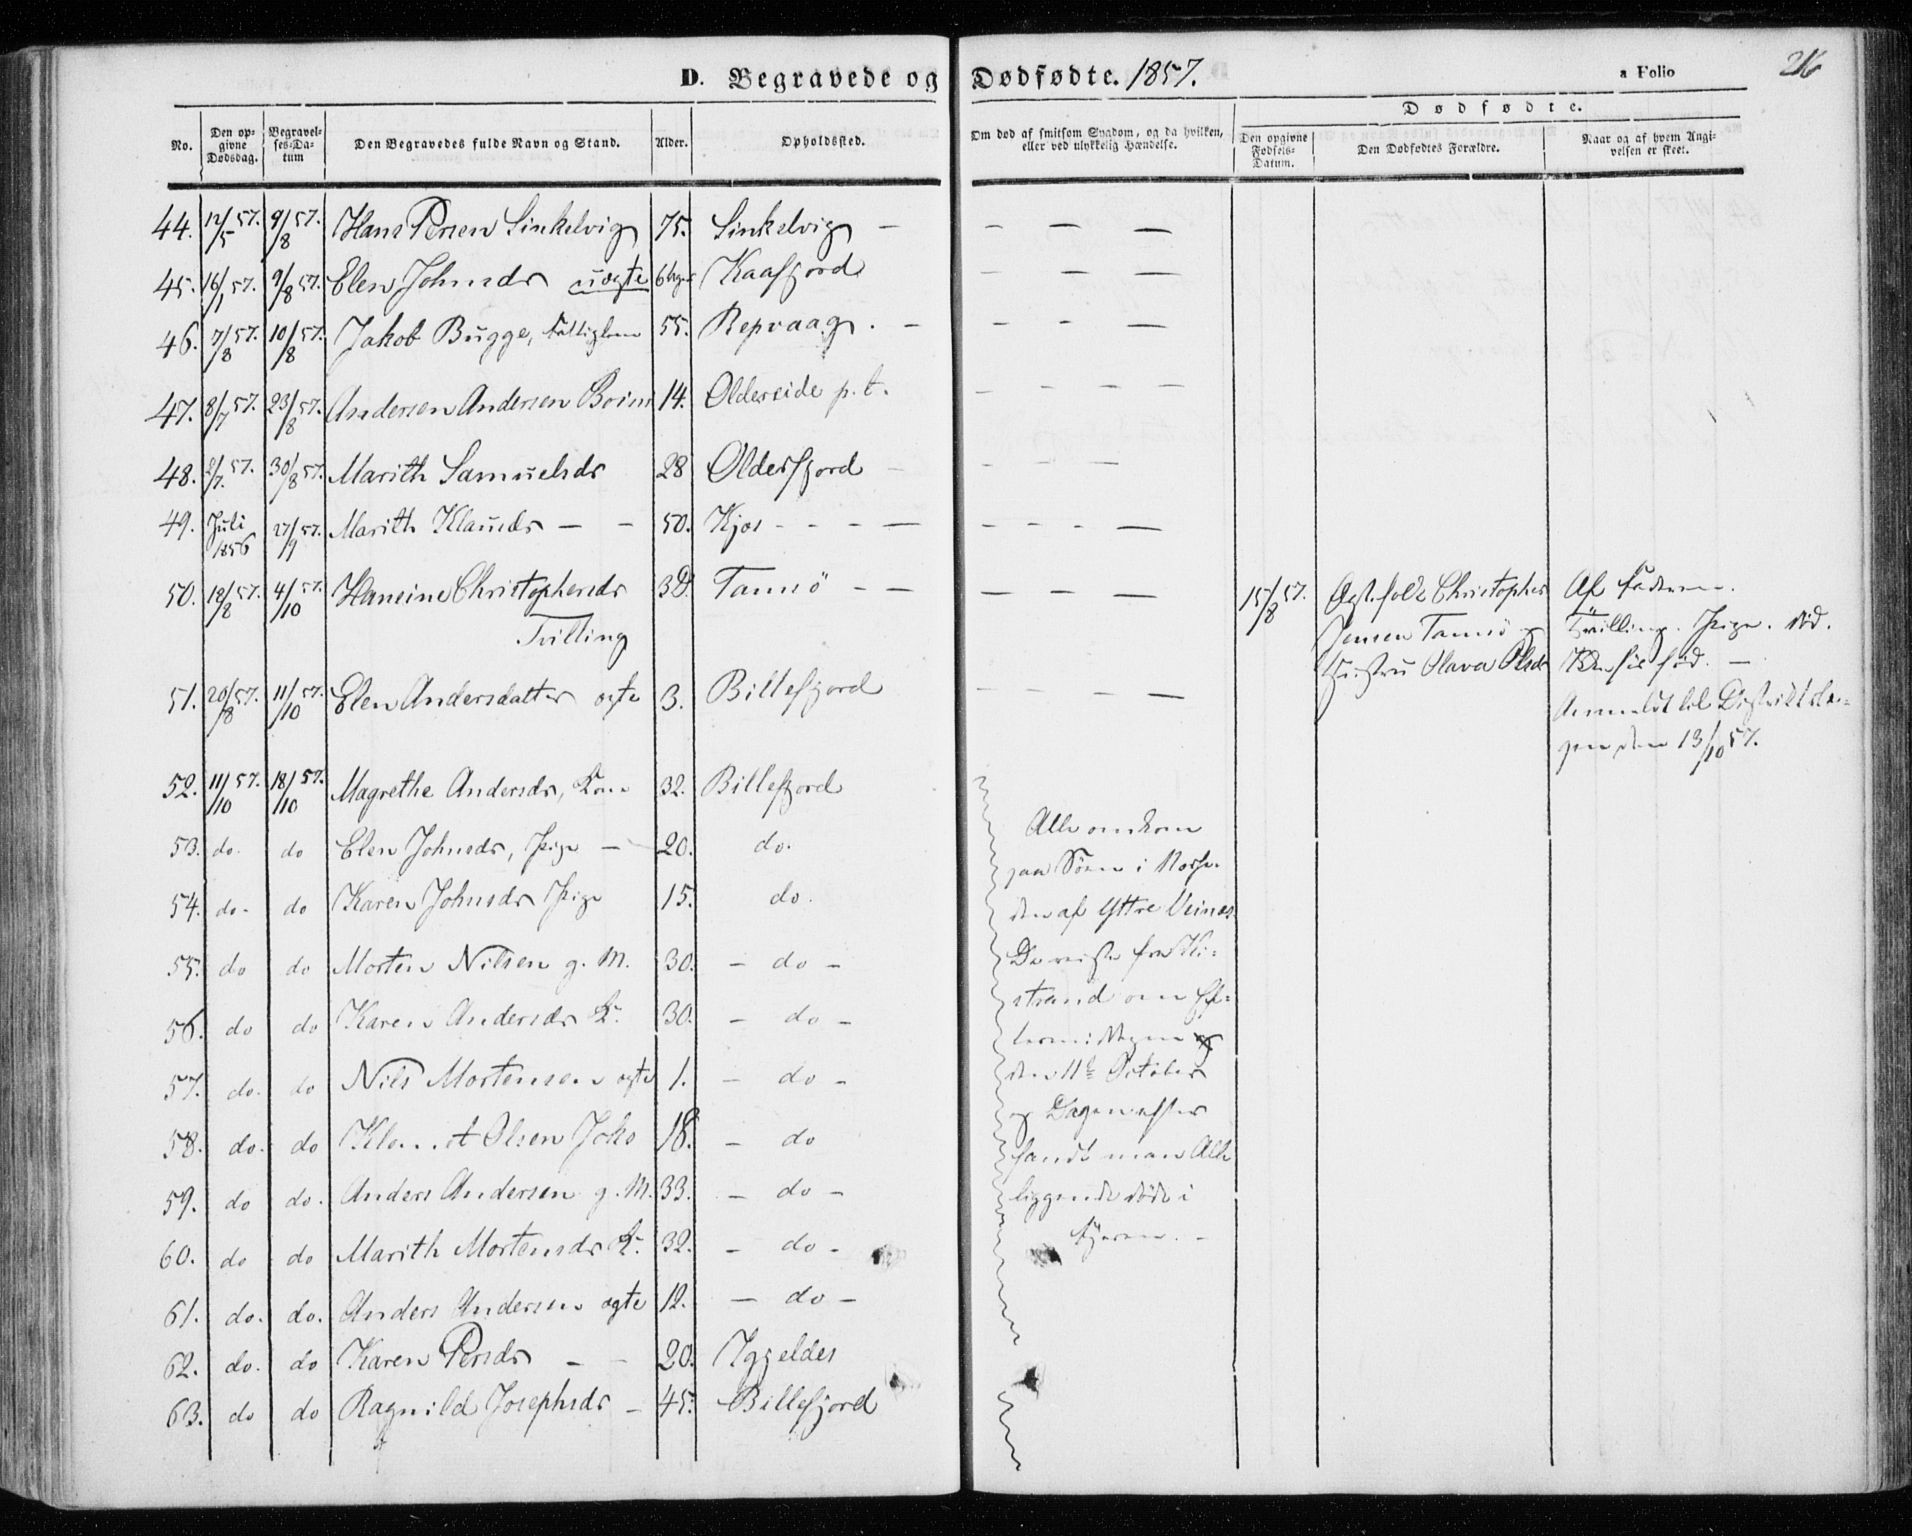 D. Begravede og Dødfødte. 1857. a Folio 216
No. Den opgivne Dødsdag. Begravelses-Datum Den Begravedes fulde Navn og Stand. Alder. Opholdssted. Om død af smitsom Sygdom, og da hvilken, eller ved ulykkelig Hændelse. Dødfødte. Den opgivne Fødsels-Datum. Den Dødfødtes Forældre. Naar og af hvem Angivelsen er skeet.
44. 12/5 57. 9/8 57. Hans Persen Sinkelvig 75. Sinkelvig — — — —
45. 16/1 57. 9/8 57. Elen Johnsdr uægte Kaafjord — — —
46. 7/8 57. 10/8 57. Jakob Bugge, Fattiglem 55. Repvaag. — — — —
47. 8/7 57. 23/8 57. Andersen Andersen Boine 14. Oldereide p. t. — — — —
48. 2/7. 57. 30/8 57. Marith Samuelsdr 28 Olderfjord — — — —
49. Juli 1856 27/9 57. Marith Klausdr — — 50. Kjos - - - — — - - —
50. 12/8 57. 4/10 57. Hansine Christophersdr Tamsö — — — — - — 15/8 57. Ægtefolk Christopher Af Faderen —
Tvilling Jensen Tamsö og Tvilling. Pige. død.
Hustru Olava Olsdr
51. 20/8 57. 11/10 57. Elen Andersdatter ægte 3. Billefjord — — - — Anmeldt til Distriktslæ-
gen den 13/10 57.
52. 11/10 57. 18/10 57. Magrethe Andersdr, Kone 32. Billefjord
Alle omkom
53. do. do Elen Johnsdr, Pige — 20. do.
paa Søen i
54. do- do Karen Johnsdr Pige 15. do.
den af Yttre Veines
55. do do Morten Nilsen g. M. 30. — do —
De reiste fra Ki-
56. do do Karen Andersdr K. 30. — do —
strand om Ef-
termiddagen
57. do. do Nils Mortensen ægte 1. — do —
den 11te October
58. do. do Olsen Joks 18. — do
og Dagen efter
fandt man Alle
59. do do. Anders Andersen g. M. 33. — do —
liggende døde i
60. do do Marith Mortensdr K. 32. — do —
Fjæren. —
61. do. do. Anders Andersen ægte 12. — do —
62. do. do Karen Persdr — — 20. Iggeldes
63. do do Ragnild Josephsdr — 45. Billefjord